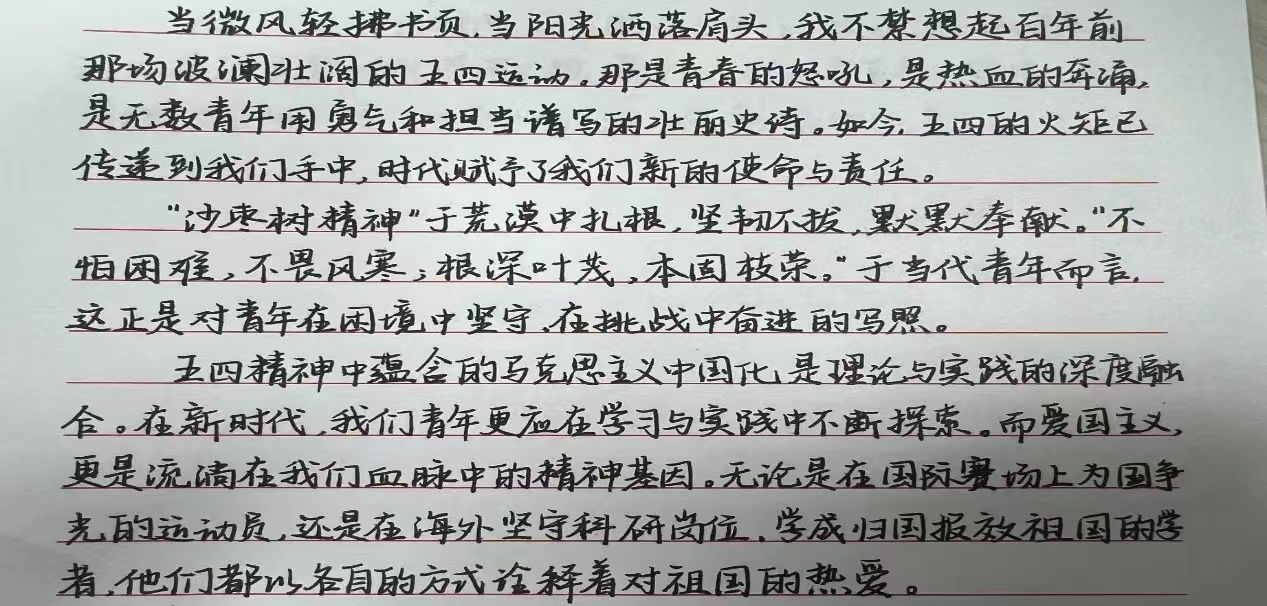 当微风轻拂书页,当阳光洒落肩头,我不禁想起百年前
那场波澜壮阔的五四运动。那是青春的怒吼,是热血的奔涌,
是无数青年用勇气和担当谱写的壮丽史诗。如今,五四的火炬已
传递到我们手中,时代赋予了我们新的使命与责任。
“沙枣树精神”于荒漠中扎根,坚韧不拔,默默奉献。“不
怕困难,不畏风寒;根深叶茂,本固枝荣。”于当代青年而言,
这正是对青年在困境中坚守、在挑战中奋进的写照。
五四精神中蕴含的马克思主义中国化,是理论与实践的深度融
合。在新时代,我们青年更应在学习与实践中不断探索。而爱国主义,
更是流淌在我们血脉中的精神基因。无论是在国际赛场上为国争
光的运动员,还是在海外坚守科研岗位,学成归国报效祖国的学
者,他们都以各自的方式诠释着对祖国的热爱。